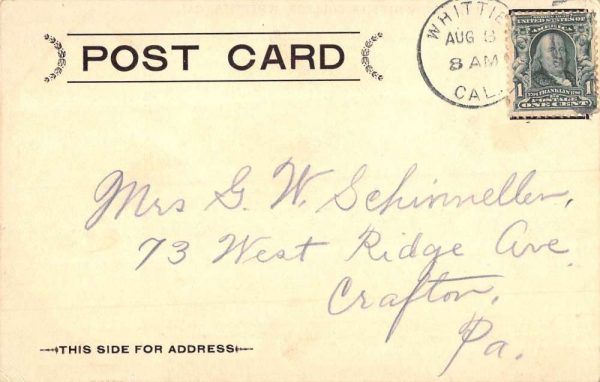 WHITTIE
AUG 8
8 AM
CAL.
UNITED STATES OF
AMERICA
1 FRANKLIN 1
POSTAGE
ONE CENT
POST CARD
Mrs G. W. Schinneller,
73 West Ridge Ave
Crafton,
Pa.
THIS SIDE FOR ADDRESS